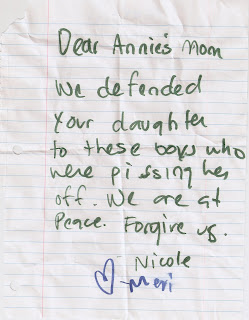 Dear Annie's Mom
We defended
your daughter
to these boys who
were pissing her
off. We are at
Peace. Forgive us.
- Nicole
♡ -Meri